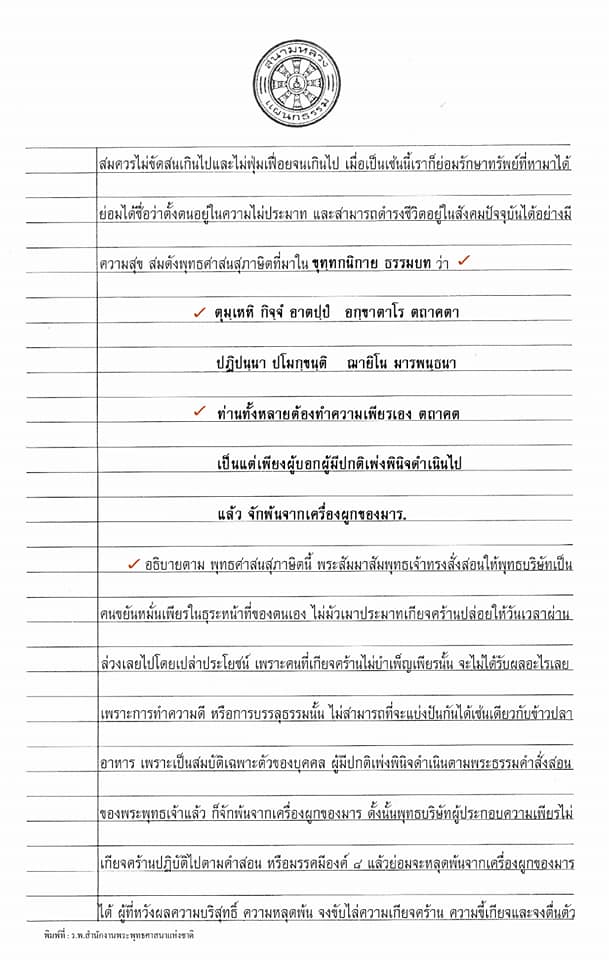 สนามหลวง
แผนกธรรม
สมควรไม่ขัดสนเกินไปและไม่ฟุ่มเฟือยจนเกินไป เมื่อเป็นเช่นนี้เราก็ย่อมรักษาทรัพย์ที่หามาได้
ย่อมได้ชื่อว่าตั้งตนอยู่ในความไม่ประมาท และสามารถดำรงชีวิตอยู่ในสังคมปัจจุบันได้อย่างมี
ความสุข สมดังพุทธศาสนสุภาษิตที่มาใน ขุททกนิกาย ธรรมบท ว่า
ตุมฺเหหิ กิจฺจํ อาตปฺปํ อกฺขาตาโร ตถาคตา
ปฏิปนฺนา ปโมกฺขนฺติ ฌายิโน มารพนฺธนา
ท่านทั้งหลายต้องทำความเพียรเอง ตถาคต
เป็นแต่เพียงผู้บอกผู้มีปกติเพ่งพินิจดำเนินไป
แล้ว จักพ้นจากเครื่องผูกของมาร.
อธิบายตาม พุทธศาสนสุภาษิตนี้ พระสัมมาสัมพุทธเจ้าทรงสั่งสอนให้พุทธบริษัทเป็น
คนขยันหมั่นเพียรในธุระหน้าที่ของตนเอง ไม่มัวเมาประมาทเกียจคร้านปล่อยให้วันเวลาผ่าน
ล่วงเลยไปโดยเปล่าประโยชน์ เพราะคนที่เกียจคร้านไม่บำเพ็ญเพียรนั้น จะไม่ได้รับผลอะไรเลย
เพราะการทำความดี หรือการบรรลุธรรมนั้น ไม่สามารถที่จะแบ่งปันกันได้เช่นเดียวกับข้าวปลา
อาหาร เพราะเป็นสมบัติเฉพาะตัวของบุคคล ผู้มีปกติเพ่งพินิจดำเนินตามพระธรรมคำสั่งสอน
ของพระพุทธเจ้าแล้ว ก็จักพ้นจากเครื่องผูกของมาร ดั้งนั้นพุทธบริษัทผู้ประกอบความเพียรไม่
เกียจคร้านปฏิบัติไปตามคำสอน หรือมรรคมีองค์ ๘ แล้วย่อมจะหลุดพ้นจากเครื่องผูกของมาร
ได้ ผู้ที่หวังผลความบริสุทธิ์ ความหลุดพ้น จงขับไล่ความเกียจคร้าน ความขี้เกียจและจงตื่นตัว
พิมพ์ที่ : ร.พ.สำนักงานพระพุทธศาสนาแห่งชาติ